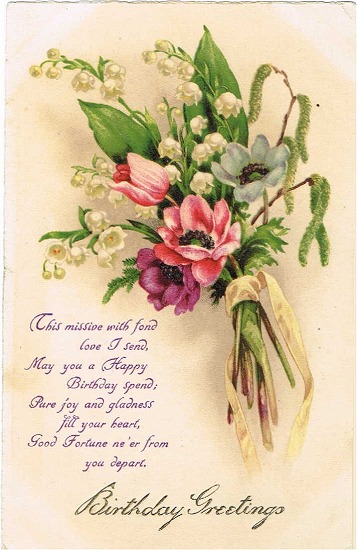 This missive with fond
love I send,
May you a Happy
Birthday spend;
Pure joy and gladness
fill your heart,
Good Fortune ne'er from
you depart.
Birthday Greetings